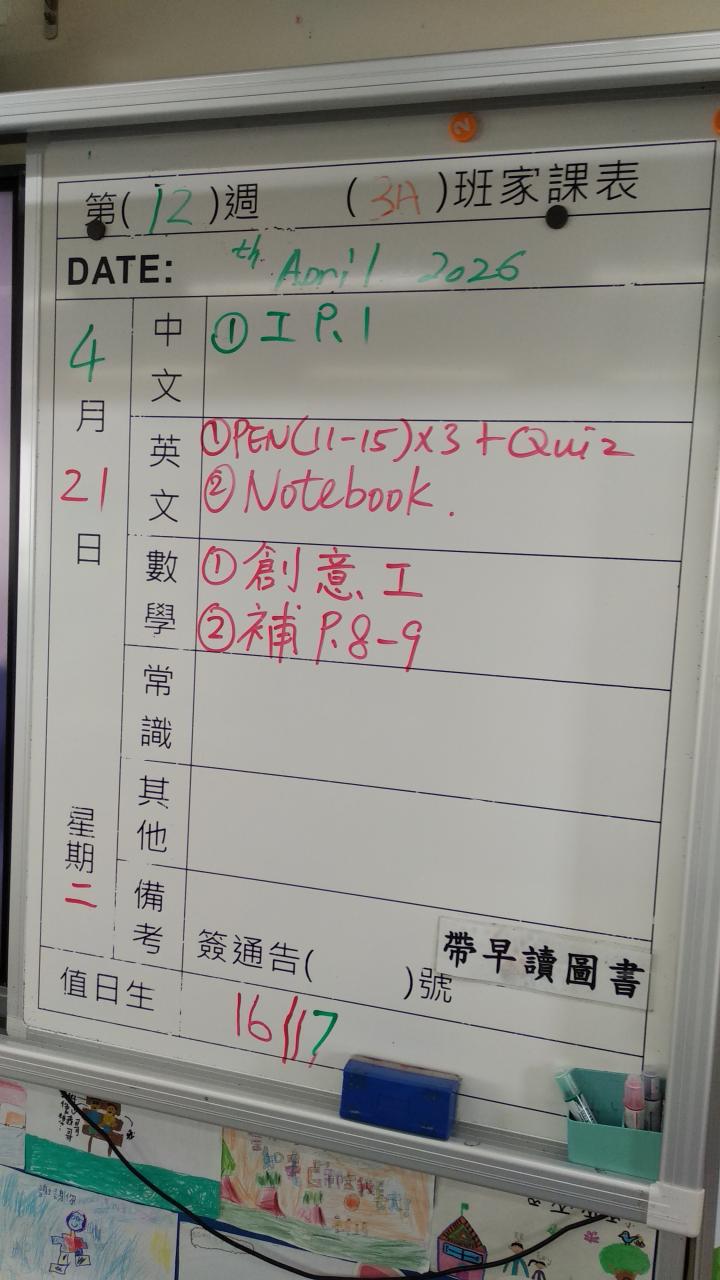 第(12)週 (3A)班家課表
DATE: th April 2026
4月21日
星期二
中文
①工 P.1
英文
①PEN(11-15)x3+Quiz
②Notebook.
數學
①創意工
②補 P.8-9
常識
其他
備考
簽通告( )號
帶早讀圖書
值日生
16 17
2
謝謝你